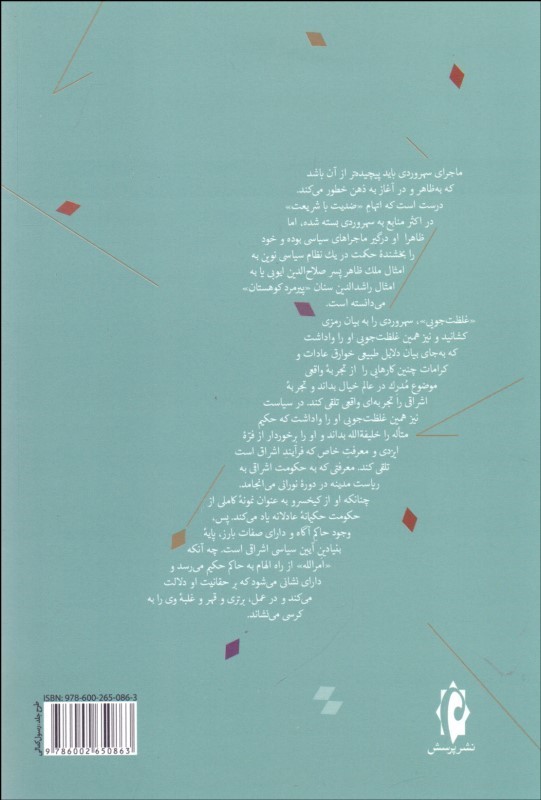 ماجرای سهروردی باید پیچیده‌تر از آن باشد
که به‌ظاهر و در آغاز به ذهن خطور می‌کند.
درست است که اتهام «ضدیت با شریعت»
در اکثر منابع به سهروردی بسته شده، اما
ظاهرا او درگیر ماجراهای سیاسی بوده و خود
را بخشندهٔ حکمت در یك نظام سیاسی نوین به
امثال ملك ظاهر پسر صلاح‌الدین ایوبی یا به
امثال راشدالدین سنان «پیرمرد کوهستان»
می‌دانسته است.
«غلظت‌جویی»، سهروردی را به بیان رمزی
کشانید و نیز همین غلظت‌جویی او را واداشت
که به‌جای بیان دلایل طبیعی خوارق عادات و
کرامات چنین کارهایی را از تجربهٔ واقعی
موضوع مُدرك در عالم خیال بداند و تجربهٔ
اشراقی را تجربه‌ای واقعی تلقی کند. در سیاست
نیز همین غلظت‌جویی او را واداشت که حکیم
متأله را خلیفةالله بداند و او را برخوردار از فرّهٔ
ایزدی و معرفتِ خاص که فرآیند اشراقی است
تلقی کند. معرفتی که به حکومت اشراقی به
ریاست مدینه در دورهٔ نورانی می‌انجامد.
چنانکه او از کیخسرو به عنوان نمونهٔ کاملی از
حکومت حکیمانهٔ عادلانه یاد می‌کند. پس،
وجود حاکم آگاه و دارای صفات بارز، پایهٔ
بنیادین آیین سیاسی اشراقی است. چه آنکه
«امرالله» از راه الهام به حاکم حکیم می‌رسد و
دارای نشانی می‌شود که بر حقانیت او دلالت
می‌کند و در عمل، برتری و قهر و غلبهٔ وی را به
کرسی می‌نشاند.
نشر پرسش
ISBN: 978-600-265-086-3
9 786002 650863
طرح جلد: رسول کمالی